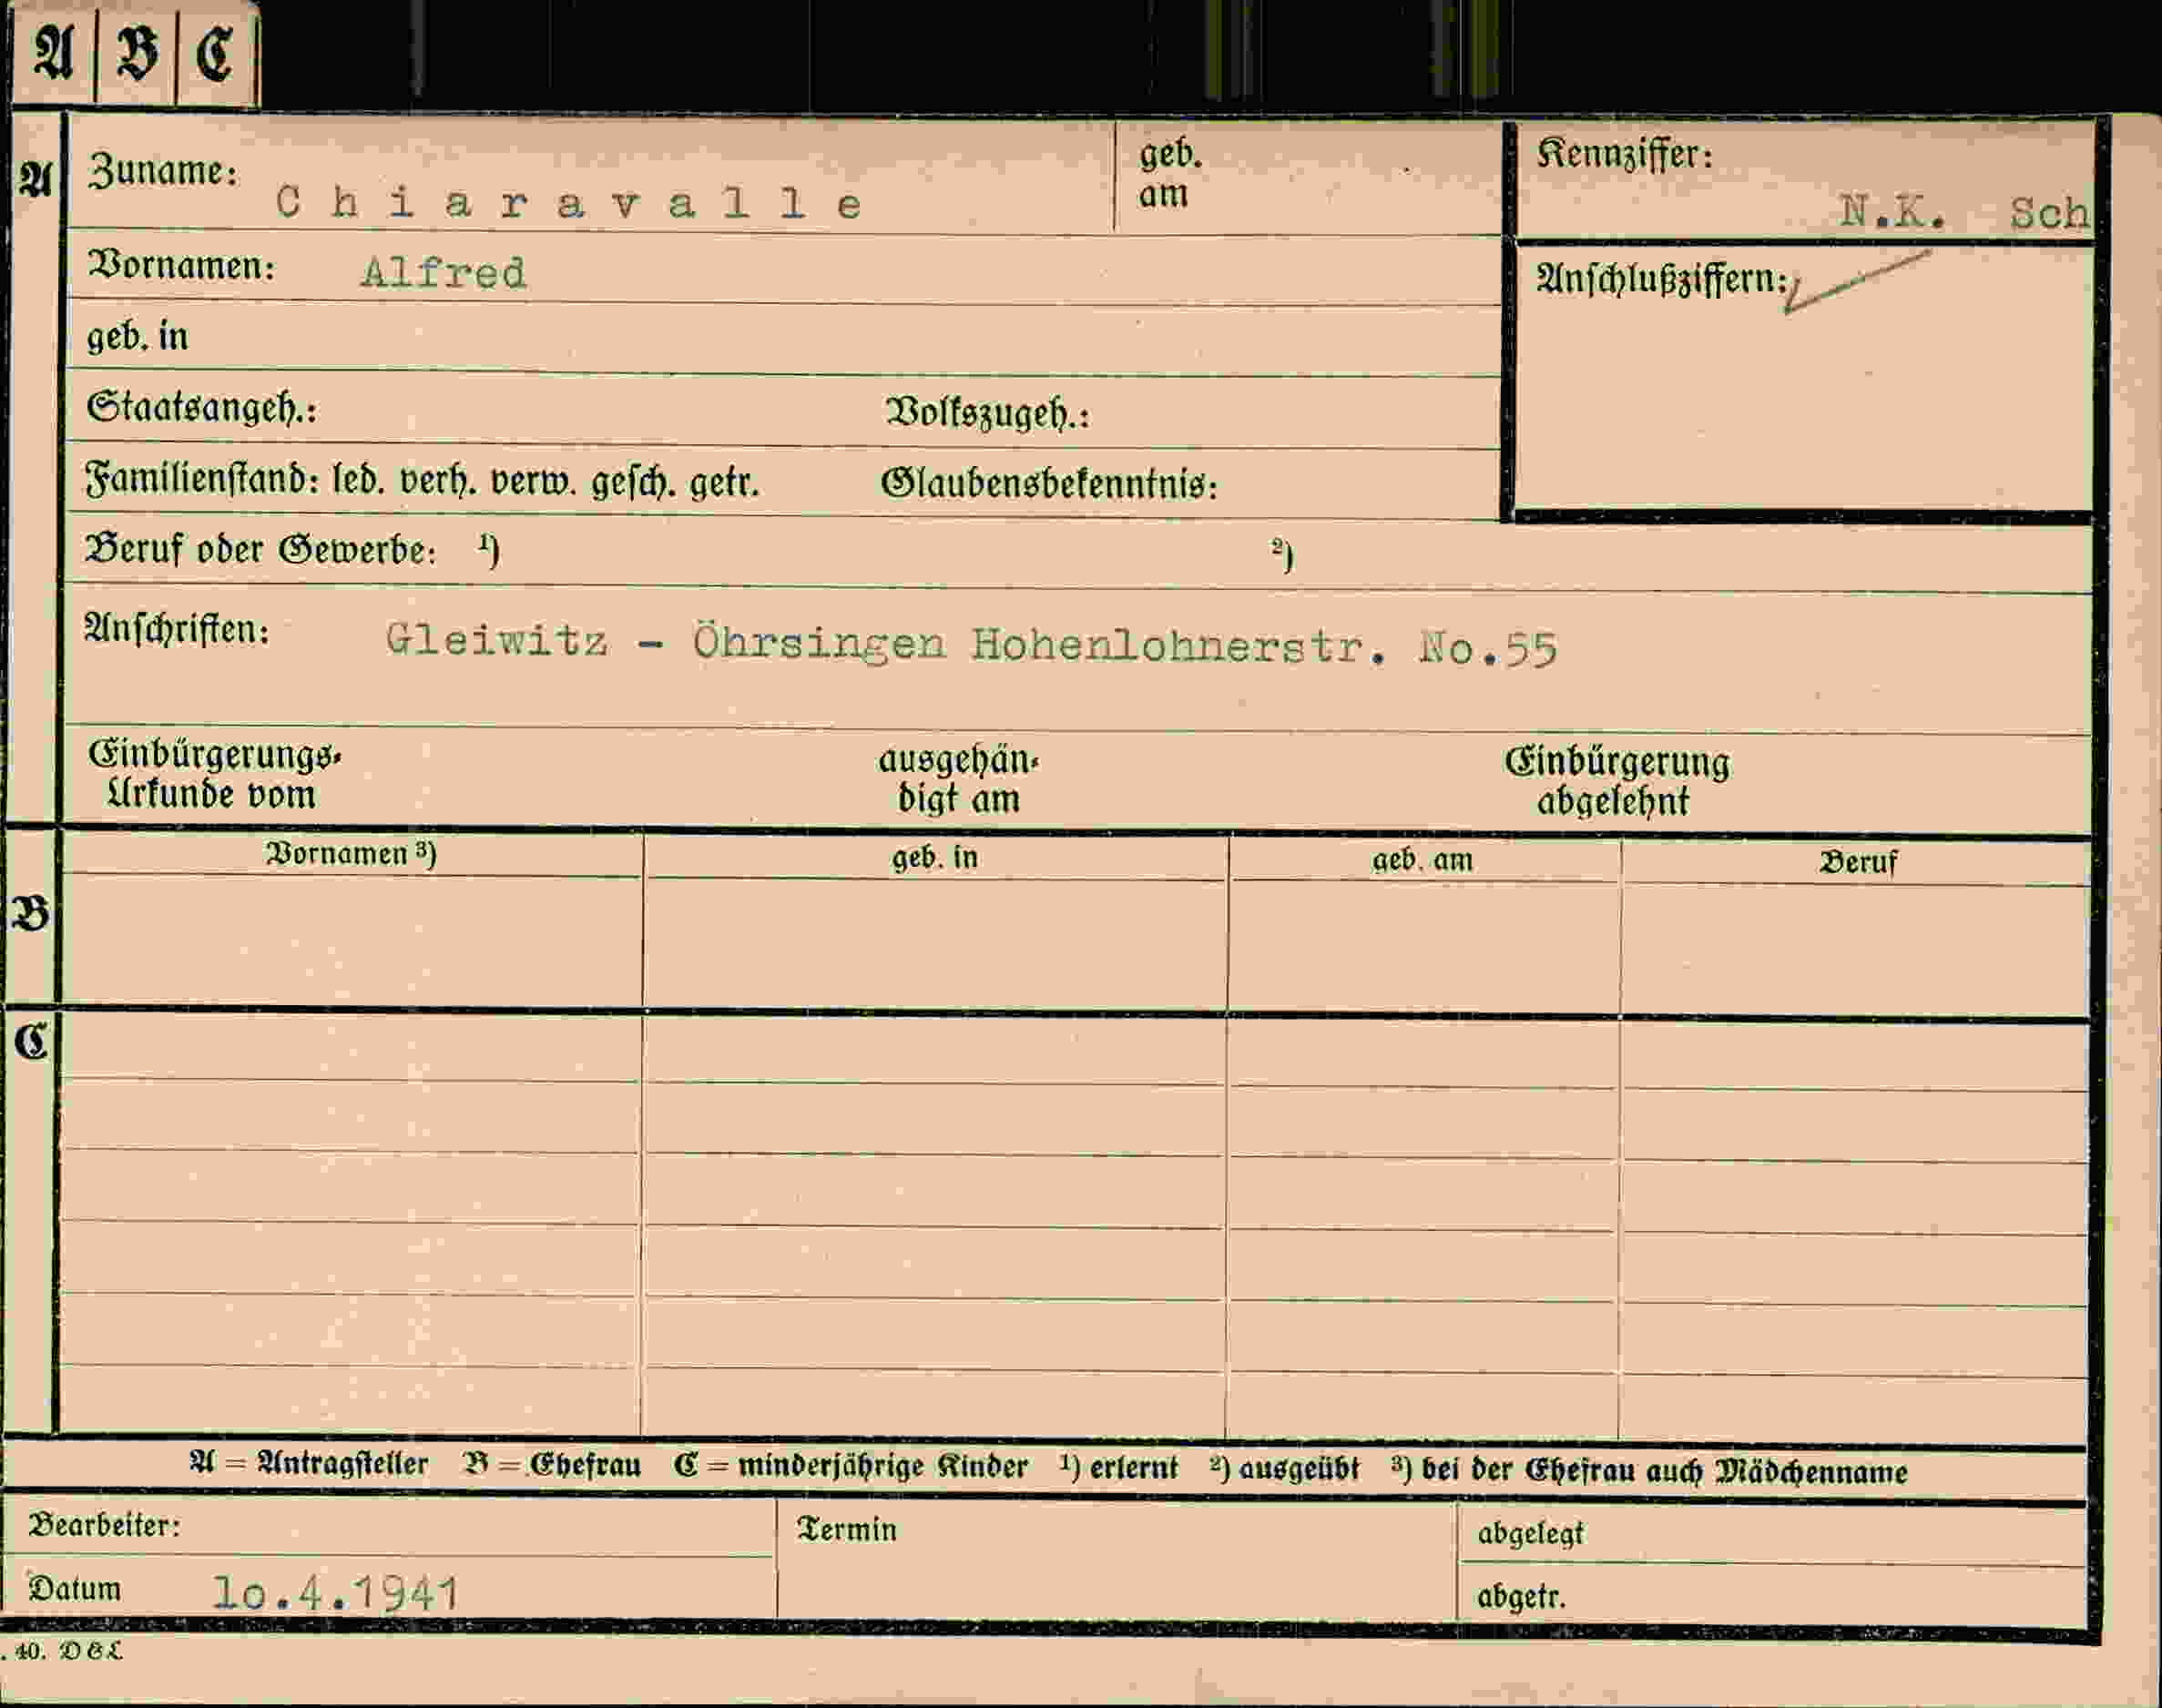 A B C
A Zuname: Chiaravalle geb. am Kennziffer: N.K. Sch
Vornamen: Alfred Anschlußziffern:
geb. in
Staatsangeh.: Volkszugeh.:
Familienstand: led. verh. verw. gesch. getr. Glaubensbekenntnis:
Beruf oder Gewerbe: ¹) ²)
Anschriften: Gleiwitz - Öhrsingen Hohenlohnerstr. No.55
Einbürgerungs- ausgehän- Einbürgerung
Urkunde vom digt am abgelehnt
Vornamen ³) geb. in geb. am Beruf
B
C
A = Antragsteller B = Ehefrau C = minderjährige Kinder ¹) erlernt ²) ausgeübt ³) bei der Ehefrau auch Mädchenname
Bearbeiter: Termin abgelegt
Datum lo.4.1941 abgetr.
. 40. DGL